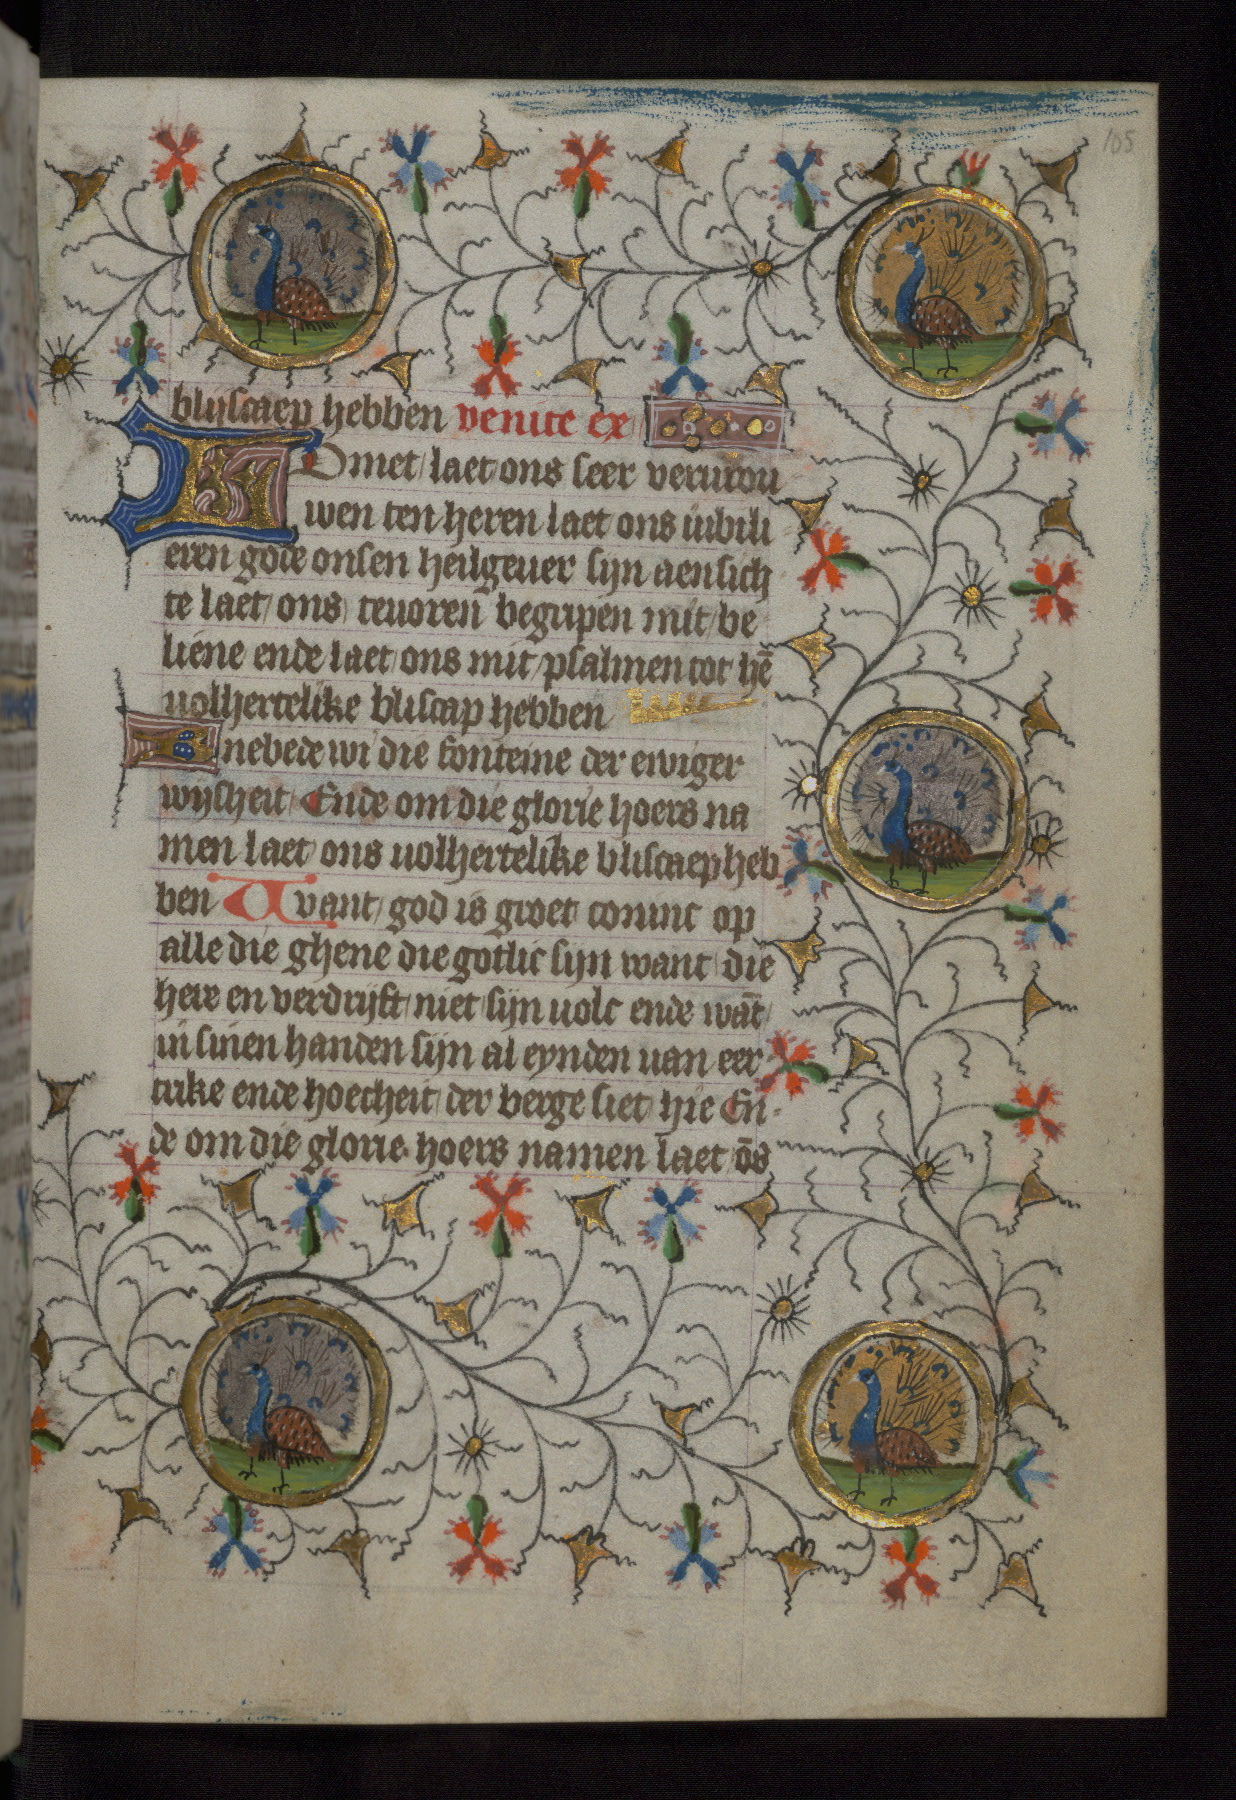 105
blijscaep hebben venite ex
Comet laet ons seer vervrou
wen ten heren laet ons iubili
eren gode onsen heilgeuer sijn aensich
te laet ons teuoren begripen mit be
liene ende laet ons mit psalmen tot hē
uolhertelike bliscap hebben
Anebede wi die fonteine der ewiger
wijsheit Ende om die glorie hoers na
men laet ons uolhertelike bliscaep heb
ben Want god is groet coninc op
alle die ghene die gotlic sijn want die
here en verdrijft niet sijn uolc ende wāt
in sinen handen sijn al eynden uan eer
trike ende hoecheit der berge siet hie En
de om die glorie hoers namen laet ōs